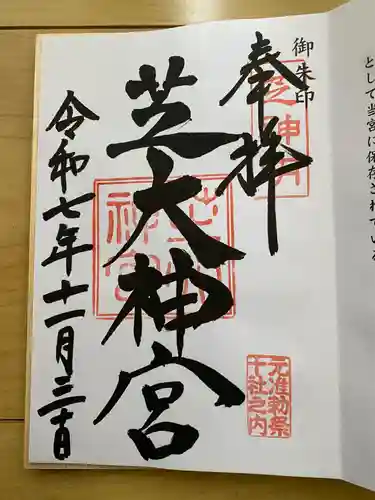 として当宮に保存されている
御朱印
奉拝
芝神明
芝大神宮
元准勅祭
十社之内
令和七年十一月三十日